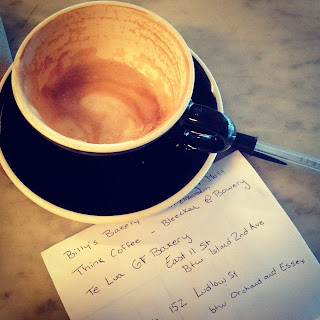 Billy's Bakery
Think Coffee - Bleecker @ Bowery
Te Lua GF Bakery
East 11 St
Btw 1st and 2nd Ave
152 Ludlow St
btw Orchard and Essex